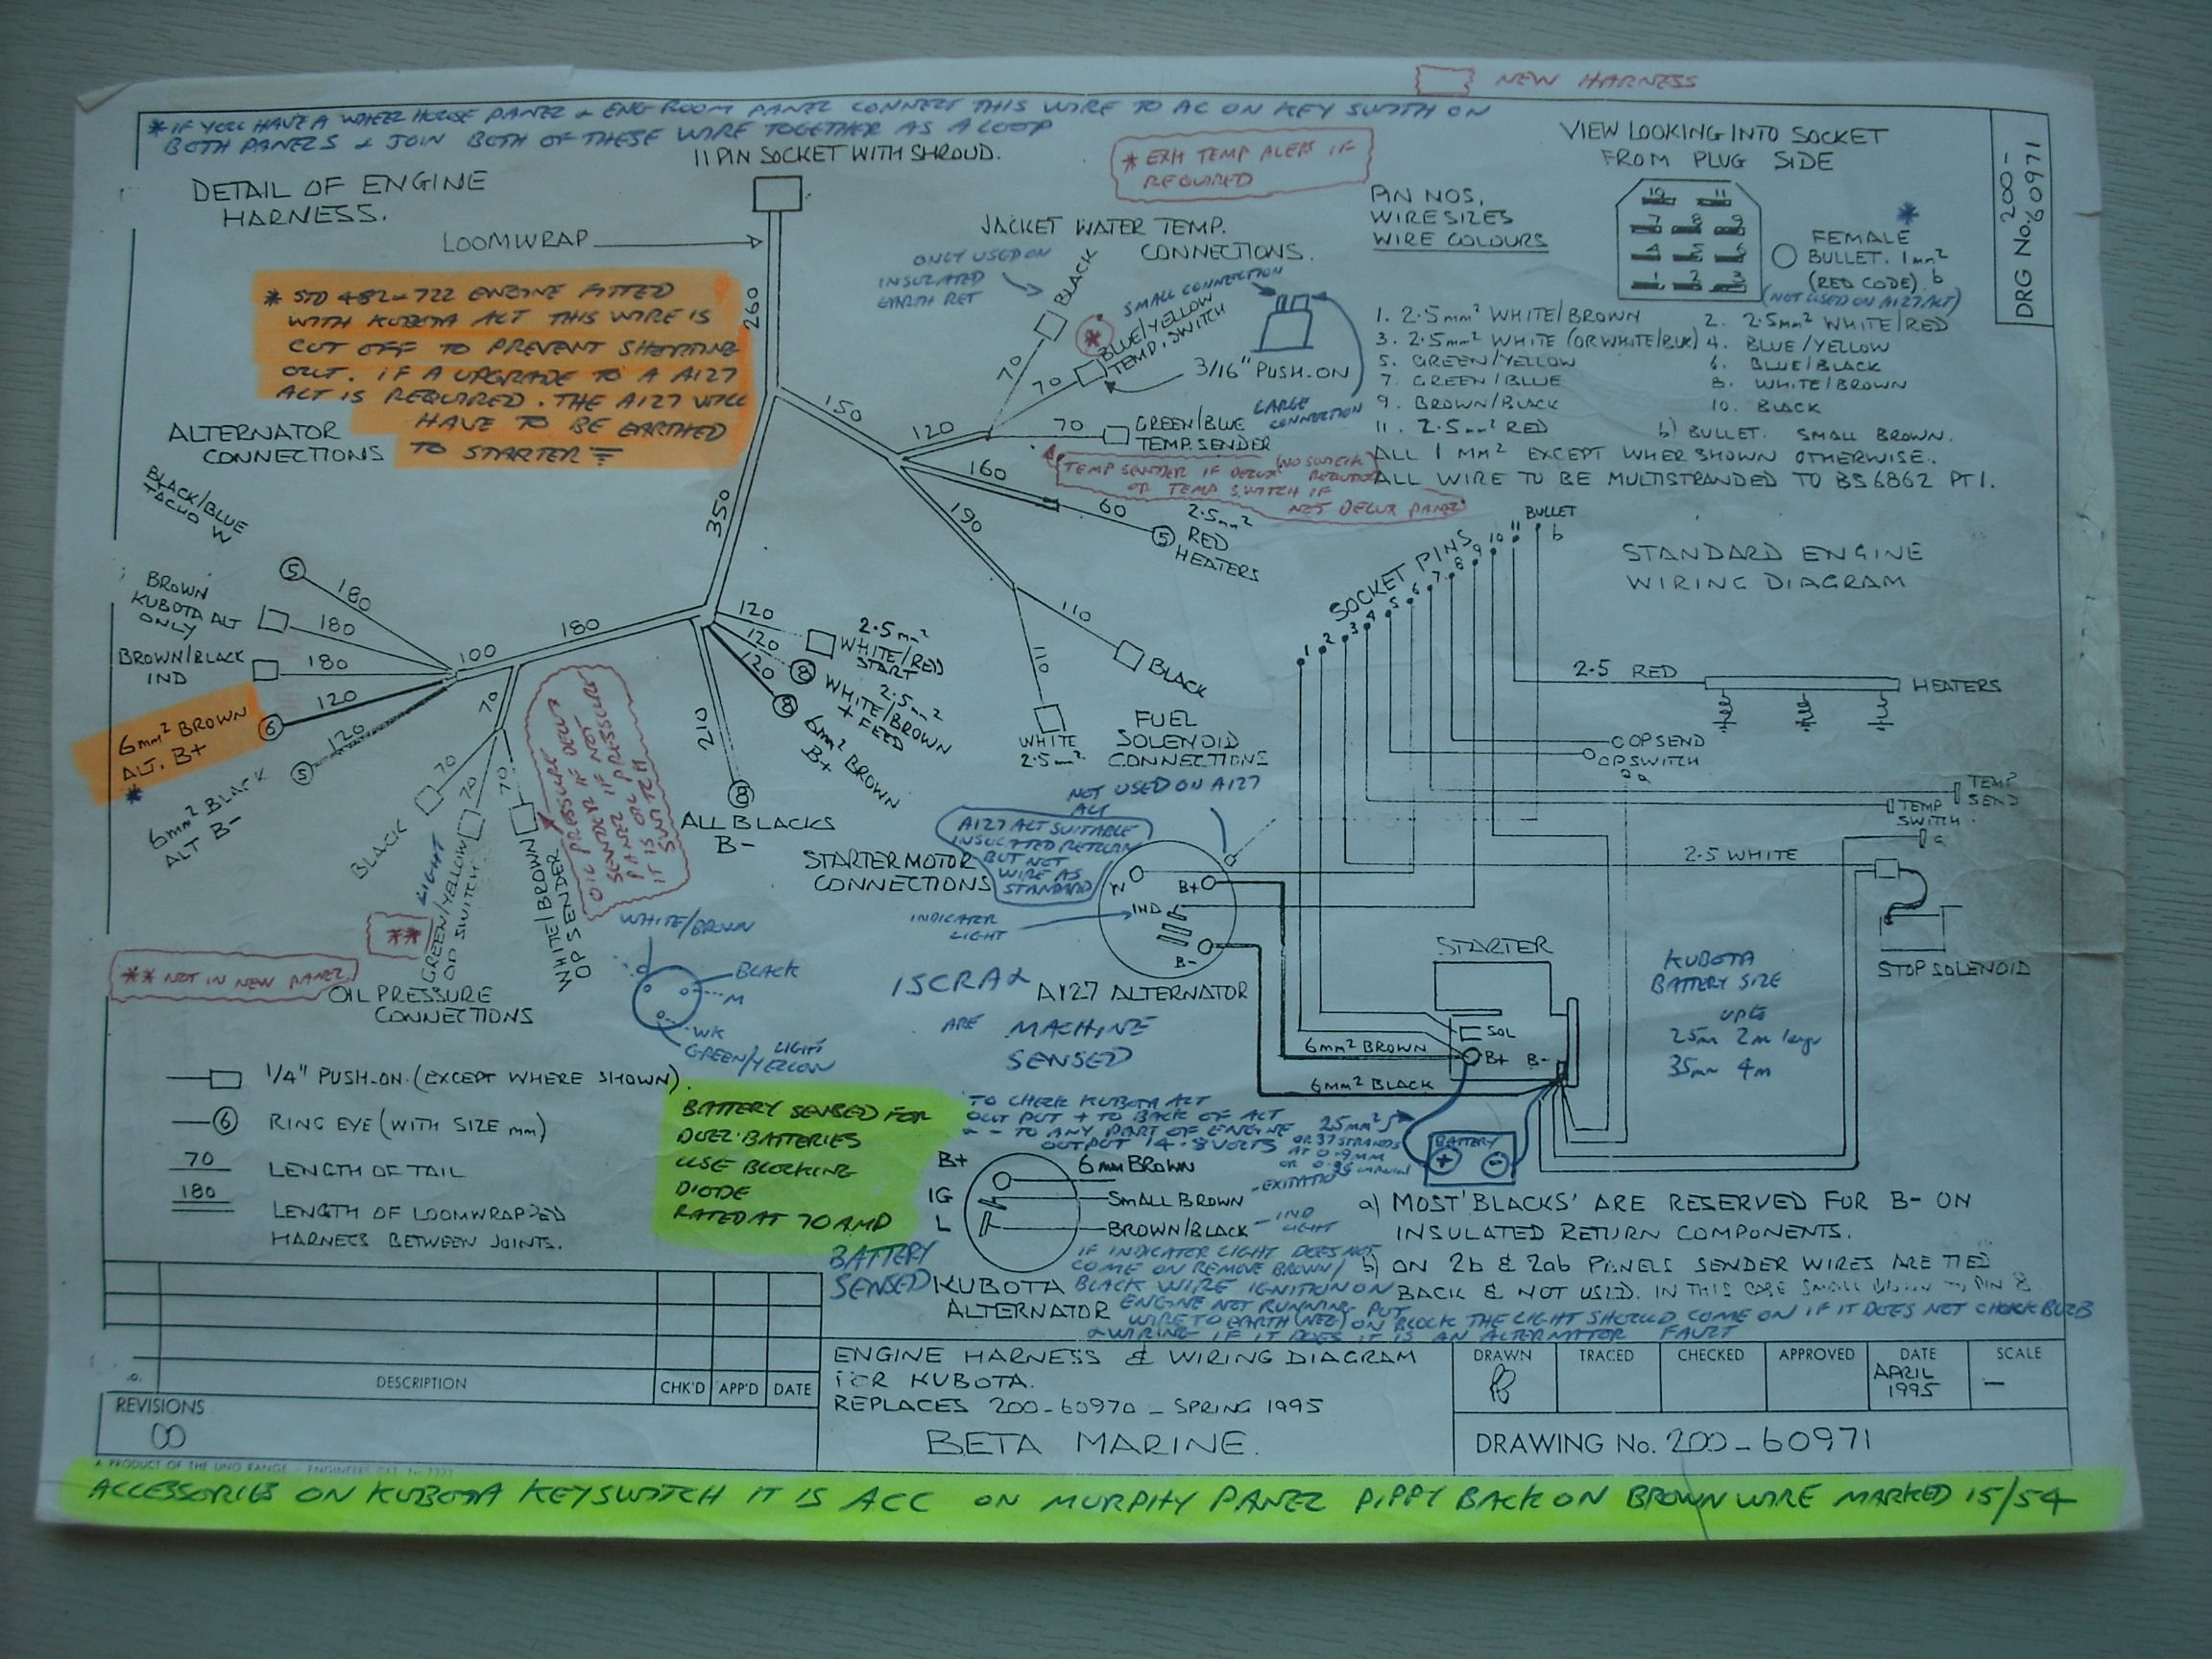 NEW HARNESS
*IF YOU HAVE A WHEEL HOUSE PANEL & ENG ROOM PANEL CONNECT THIS WIRE TO AC ON KEY SWITH ON
BOTH PANELS & JOIN BOTH OF THESE WIRE TOGETHER AS A LOOP
11 PIN SOCKET WITH SHROUD.
DETAIL OF ENGINE
HARNESS.
LOOMWRAP
260
* STD 482 & 722 ENGINE FITTED
WITH KUBOTA ALT THIS WIRE IS
CUT OFF TO PREVENT SHORTING
OUT. IF A UPGRADE TO A A127
ALT IS REQUIRED. THE A127 WILL
HAVE TO BE EARTHED
TO STARTER
* EXH TEMP ALERS IF
REQUIRED
JACKET WATER TEMP.
CONNECTIONS.
ONLY USED ON
INSULATED
EARTH RET
BLACK
70
SMALL CONNECTION
*
BLUE/YELLOW
TEMP. SWITCH
70
3/16" PUSH-ON
LARGE
CONNECTION
150
120
70
GREEN/BLUE
TEMP. SENDER
TEMP SENDER IF DELUX
OR TEMP SWITCH IF
NOT DELUX PANEL
160
60
5
2.5mm²
RED
HEATERS
190
110
BLACK
110
WHITE
2.5mm²
FUEL
SOLENOID
CONNECTIONS
VIEW LOOKING INTO SOCKET
FROM PLUG SIDE
PIN NOS.
WIRE SIZES
WIRE COLOURS
10 11
7 8 9
4 5 6
1 2 3
*
FEMALE
BULLET. 1mm²
(RED CODE). b
(NOT USED ON A127 ALT)
DRG No. 200-
60971
1. 2.5mm² WHITE/BROWN
2. 2.5mm² WHITE/RED
3. 2.5mm² WHITE (OR WHITE/BLK)
4. BLUE/YELLOW
5. GREEN/YELLOW
6. BLUE/BLACK
7. GREEN/BLUE
8. WHITE/BROWN
9. BROWN/BLACK
10. BLACK
11. 2.5mm² RED
b) BULLET. SMALL BROWN.
ALL 1 MM² EXCEPT WHER SHOWN OTHERWISE.
ALL WIRE TO BE MULTISTRANDED TO BS6862 PT1.
ALTERNATOR
CONNECTIONS
350
BLACK/BLUE
TACHO W
5
180
BROWN
KUBOTA ALT
ONLY
180
BROWN/BLACK
IND
180
6mm² BROWN
ALT. B+
*
6
120
6mm² BLACK
ALT B-
5
120
100
180
70
70
BLACK
70
LIGHT
GREEN/YELLOW
OP SWITCH
70
WHITE/BROWN
OP SENDER
**
** NOT IN NEW PANEL
OIL PRESSURE
CONNECTIONS
OIL PRESSURE
SENDER IF DELUX
PANEL IF NOT
IT IS OIL PRESSURE
SWITCH
120
2.5mm²
WHITE/RED
START
120
8
2.5mm²
WHITE/BROWN
+ FEED
120
8
6mm² BROWN
B+
210
8
ALL BLACKS
B-
STARTER MOTOR
CONNECTIONS
WHITE/BROWN
BLACK
M
WK
LIGHT
GREEN/YELLOW
STANDARD ENGINE
WIRING DIAGRAM
SOCKET PINS
1 2 3 4 5 6 7 8 9 10 11
BULLET
b
2.5 RED
HEATERS
OP SEND
OP SWITCH
a
TEMP
SEND
TEMP
SWITCH
a
2.5 WHITE
STOP SOLENOID
NOT USED ON A127
ALT
A127 ALT SUITABLE
INSULATED RETURN
BUT NOT
WIRE AS
STANDARD
W
B+
IND
B-
INDICATER
LIGHT
ISCRA &
A127 ALTERNATOR
ARE MACHINE
SENSED
STARTER
SOL
B+
B-
6mm² BROWN
6mm² BLACK
KUBOTA
BATTERY SIZE
UPTO
25mm 2m
35mm 4m
25mm²
OR 37 STRANDS
AT 0.9MM
BATTERY
+ -
1/4" PUSH-ON. (EXCEPT WHERE SHOWN).
6
RING EYE (WITH SIZE mm)
70
LENGTH OF TAIL
180
LENGTH OF LOOMWRAPPED
HARNESS BETWEEN JOINTS.
BATTERY SENSED FOR
DUEL BATTERIES
USE BLOCKING
DIODE
RATED AT 70 AMP
TO CHECK KUBOTA ALT
OUT PUT + TO BACK OF ALT
& - TO ANY PART OF ENGINE
OUTPUT 14.8 VOLTS
B+
6mm BROWN
IG
SMALL BROWN
- EXITATION
L
BROWN/BLACK
- IND
LIGHT
BATTERY
SENSED
KUBOTA
ALTERNATOR
IF INDICATER LIGHT DOES NOT
COME ON REMOVE BROWN/
BLACK WIRE IGNITION ON
ENGINE NOT RUNNING PUT
WIRE TO EARTH (NEG) ON BLOCK THE LIGHT SHOULD COME ON IF IT DOES NOT CHECK BULB
& WIRING IF IT DOES IT IS AN ALTERNATOR FAULT
a) MOST 'BLACKS' ARE RESERVED FOR B- ON
INSULATED RETURN COMPONENTS.
b) ON 2b & 2ab PANELS SENDER WIRES ARE TIED
BACK & NOT USED. IN THIS CASE SMALL BROWN TO PIN 8
DESCRIPTION
CHK'D
APP'D
DATE
REVISIONS
ENGINE HARNESS & WIRING DIAGRAM
FOR KUBOTA.
REPLACES 200-60970 - SPRING 1995
BETA MARINE.
DRAWN
TRACED
CHECKED
APPROVED
DATE
APRIL
1995
SCALE
—
DRAWING No. 200-60971
A PRODUCT OF THE UNO RANGE - ENGINEERS CAT. No. 7303
ACCESSORIES ON KUBOTA KEYSWITCH IT IS ACC ON MURPHY PANEL PIPPY BACK ON BROWN WIRE MARKED 15/54